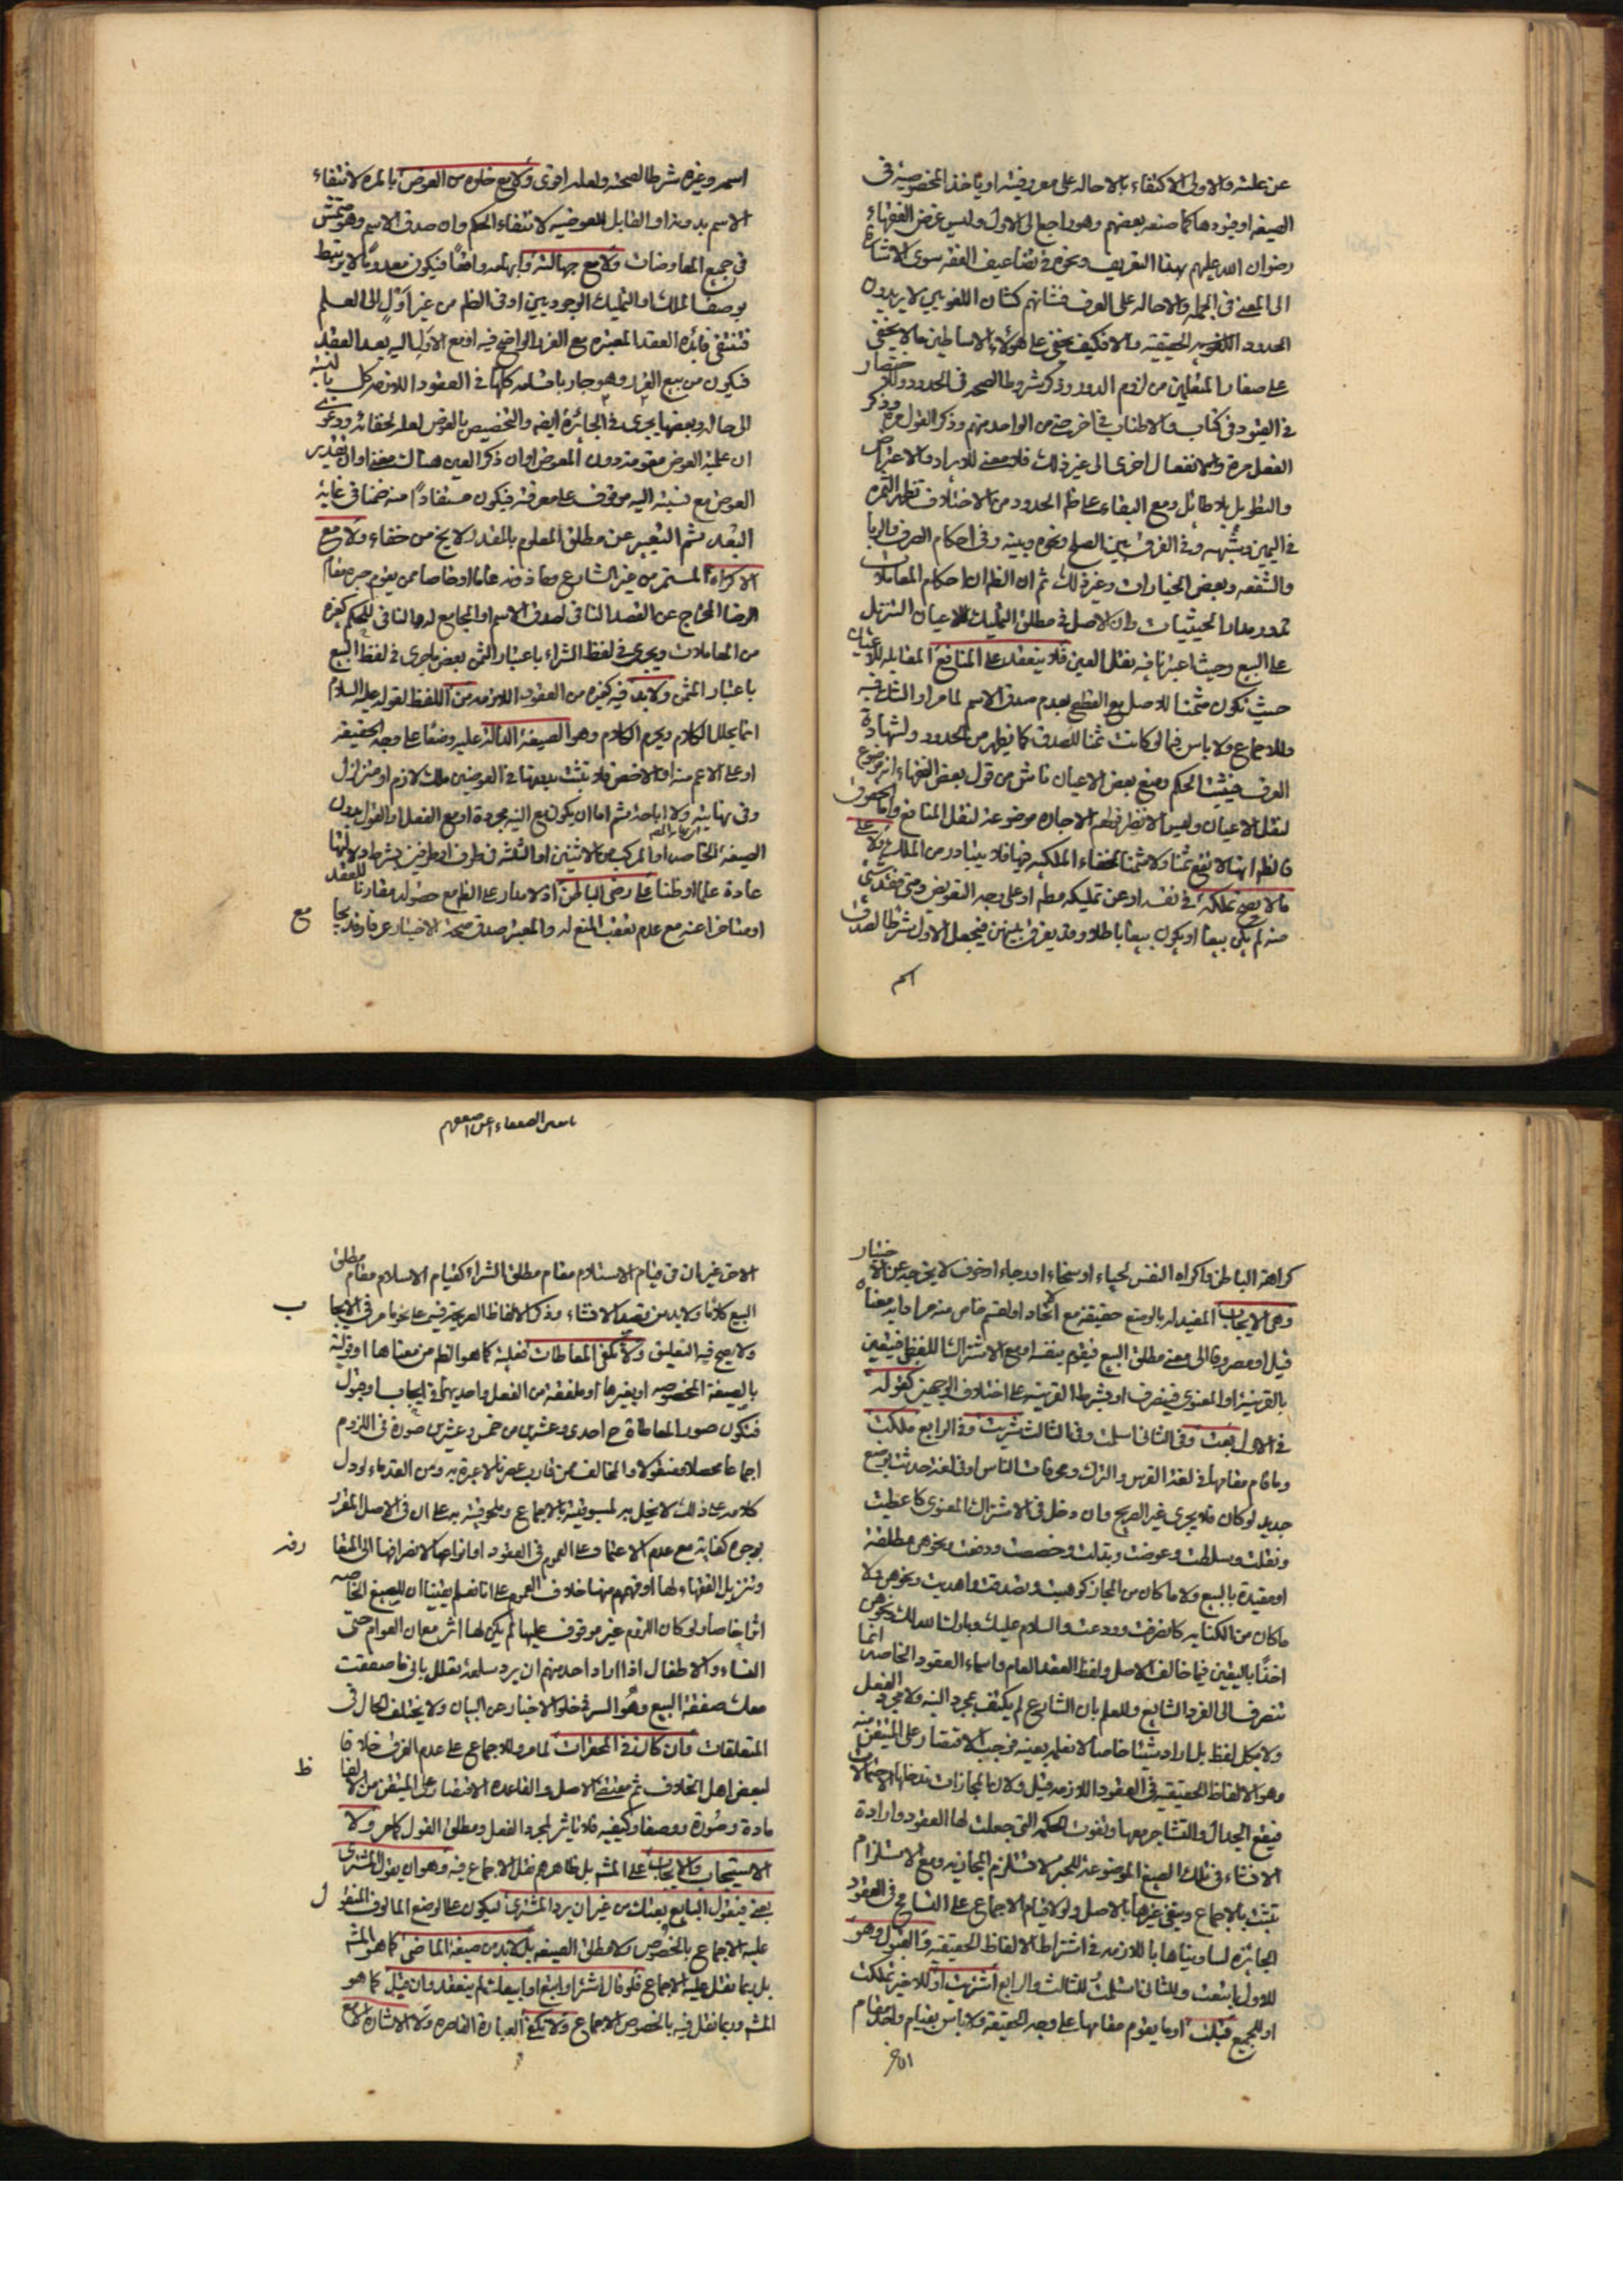 عن علته والاولى الاكتفاء بالاحاله على معروفيته او يأخذ الخصوصية في
الصيغه او قيودها كما صنعه بعضهم وهو راجع الى الاول وليس غرض الفقهاء
رضوان الله عليهم بهذا التعريف ونحوه في تضاعيف الفقه سوى الاشارة
الى المعنى في الجمله والاحاله على العرف فشانهم كشان اللغويين لا يريدون
الحدود الحقيقيه والا فكيف يخفى على هؤلاء الاساطين ما لا يخفى
على صغار المتعلمين من لزوم الدور وذكر شروط الصحه في الحدود والاختصار
في القيود في كتاب والاطناب في اخر حتى من الواحد منهم وذكر القول مرة وذكر
الفعل مرة والانفعال اخرى الى غير ذلك فلا معنى للايراد والاعتراض
والتطويل بلا طائل ومع البقاء على ظاهر الحدود من الاختلاف تظهر الثمره
في اليمين وشبهه وفي الفرق بين الصلح ونحوه وبينه وفي احكام الصرف والربا
والشفعه وبعض الخيارات وغير ذلك ثم ان الظاهر ان احكام المعاملات
تدور مدار الحيثيات وان الاصل في مطلق التمليك للاعيان التنزيل
على البيع وحيث اعتبرنا فيه نقل العين فلا ينعقد على المنافع المقابله للاعيان
حيث تكون مثمنا للاصل مع القطع بعدم صدق الاسم لما مر او الشك فيه
وللاجماع ولا باس فيما لو كانت ثمنا للصدق كما يظهر من الحدود ولشهادة
العرف فيثبت الحكم ومنع بعض الاعيان ناش من قول بعض الفقهاء انه موضوع
لنقل الاعيان وليس الا نظير قولهم الاجاره موضوعة لنقل المنافع واما الحقوق
فالظاهر انها لا تقع ثمنا ولا مثمنا لخفاء الملكيه فيها فلا يتبادر من الملك ولا على
ما لا يصح تملكه في نفسه او عن تمليكه مطلقا او على وجه التعويض ومتى فقد شئ
منه لم يكن بيعا او يكون بيعا باطلا وقد يفرق بينهن فيجعل الاول شرطا لصدق
اسم
اسمه وغيره شرطا لصحته ولعله اقوى ولا مع خلوه من العوض بالمره لانتفاء
الاسم بدونه او المقابل للعوضيه لانتفاء الحكم وان صدق الاسم وهو متمش
في جميع المعاوضات ولا مع جهالته وابهامه واقعا فيكون معدوما لا يرتبط
به وصف الملك والتمليك الوجوديين او في الظاهر من غير اول الى العلم
فتنتفي فائدة العقد المعتبره مع الغرر الواضح فيه او مع الاول اليه بعد العقد
فيكون من بيع الغرر وهو جار باقسامه كلها في العقود اللازمه كل بالنسبة
الى حاله وبعضها يجرى في الجائزة ايضا والتخصيص بالعوض لعله لخفائه ودعوى
ان علميه العوض مقومة دون المعوض او ان ذكر العين هناك مغن او ان تقدير
العوض مع نسبته اليه موقوف على معرفته فيكون مستفادا منه ضمنا في غاية
البعد ثم التعبير عن مطلق المعلوم بالمقدر لا يخ من خفاء ولا مع
الاكراه المستمر من غير الشارع وماذونه عاما او خاصا ممن يقوم جبره مقام
الرضا المخرج عن القصد النافي لصدق الاسم او الجامع له والنافي للحكم كغيره
من المعاملات ويجرى في لفظ الشراء باعتبار الثمن بعض ما جرى في لفظ البيع
باعتبار المثمن ولابد فيه كغيره من العقود اللازمه من اللفظ لقوله عليه السلام
انما يحلل الكلام ويحرم الكلام وهو الصيغة الدالة عليه وضعا على وجه الحقيقة
او على الاعم منه او الاخص فلا يثبت بدونها في العوضين ملك لازم او متزلزل
وفي نهايته ولا اباحة ثم اما ان يكون مع النيه مجردة او مع الفعل او القول بدون
الصيغة الخاصه او المركب من الاثنين او الثلثه في طرف او طرفين بشرط دلالتها
عادة علما او ظنا على رضى الباطن اذ لا مدار على الظاهر مع حصوله مقارنا للعقد
او متاخرا عنه مع عدم تعقب المنع له والمعتبر صدق صحة الاختيار عرفا وقد يجامع
كراهة الباطن واكراه النفس لحياء او سخاء او رجاء او خوف لا يخرجه عن الاختيار
وهي الايجاب المفيد له بالوضع حقيقة مع الاتحاد او لقسم خاص منه مرادا به معناه
قبل او مصروفا الى معنى مطلق البيع فيقوم بنفسه او مع الاشتراك اللفظي فيتعين
بالقرينة او المعنوى فينصرف او يشترط القرينه على اختلاف الوجهين كقوله
في الاول بعت وفي الثاني اسلمت وفي الثالث شريت وفي الرابع ملكت
وما قام مقامها في لغة الفرس والترك ومحرفات الناس او في لغة حدثت بوضع
جديد لو كان فلا يجرى غير الصريح وان دخل في الاشتراك المعنوى كاعطيت
ونقلت وسلطت وعوضت وبدلت وخصصت ودفعت ونحوهن مطلقة
او مقيدة بالبيع ولا ما كان من المجاز كوهبت وتصدقت واهديت ونحوهن ولا
ما كان من الكنايه كانصرفت وودعت والسلام عليك وبارك الله لك ونحوهن
اخذا باليقين فيما خالف الاصل ولفظ العقد العام واسماء العقود الخاصه انما
تنصرف الى الفرد الشايع وللعلم بان الشارع لم يكتف بمجرد النيه ولا مجرد الفعل
ولا بكل لفظ بل اراد شيئا خاصا لا نعلمه بعينه فوجب الاقتصار على المتيقن منه
وهو الالفاظ الحقيقيه في العقود اللازمه قيل ولان المجازات تدخلها الاحتمالات
فيقع الجدال والتشاجر معها وتفوت الحكمه التي جعلت لها العقود وارادة
الانشاء في تلك الصيغ الموضوعة للخبر لاتستلزم المجازيه ومع الاستلزام
تثبت بالاجماع ويبقى غيرها بالاصل ولولا قيام الاجماع على التسامح في العقود
الجائزة لساويناها باللازمه في اشتراط الالفاظ الحقيقيه والقبول وهو
للاول ابتعت وللثاني استلمت وللثالث والرابع اشتريت او للاخير تملكت
او للجميع قبلت او ما يقوم مقامها على وجه الحقيقة ولا باس بقيام واحد مقام
الاخر
الاخر غير ان في قيام الاستلام مقام مطلق الشراء كقيام الاسلام مقام مطلق
البيع كلاما ولابد من قصد الانشاء وذكر الالفاظ العربية فيه على نحو ما مر في الايجاب
ولا يصح فيه التعليق ولا تكفى المعاطات فعلية كما هو الظاهر من معناها او قولية
بالصيغة المخصوصه او بغيرها او ملفقة من الفعل واحديهما في ايجاب او قبول
فتكون صور المعاطاة ح احدى وعشرين من خمس وعشرين صورة في اللزوم
اجماعا محصلا ومنقولا والمخالف ممن قارب عصرنا لا عبرة به ومن القدماء لو دل
كلامه على ذلك لا يخل به لمسبوقيته بالاجماع وملحوقيته به على ان في الاصل المقرر
بوجوه كفاية مع عدم الاعتماد على العموم في العقود او انواعها لانصرافها الى المتعارف
وتنزيل الفقهاء لها او فهمهم منها خلاف العموم على انا نعلم يقينا ان للصيغ الخاصه
اثرا خاصا ولو كان اللزوم غير موقوف عليها لم يكن لها اثر مع ان العوام حتى
النساء والاطفال اذا اراد احدهم ان يرد سلعة تعلل باني ما صفقت
معك صفقة البيع وهو السر في خلو الاخبار عن البيان ولا يختلف الحال في
المتعلقات وان كان في المحقرات لما مر وللاجماع على عدم الفرق خلافا
لبعض اهل الخلاف ثم مقتضى الاصل والقاعدة الاقتصار على المتيقن من الالفاظ
مادة وصورة ووصفا وكيفيه فلا تاثير لمجرد الفعل ومطلق القول كما مر ولا
الاستيجاب والايجاب على المشهور بل ظاهرهم نقل الاجماع فيه وهو ان يقول المشترى
بعني فيقول البايع بعتك من غير ان يرد المشترى ليكون على الوضع المالوف المنقول
عليه الاجماع بالخصوص ولا مطلق الصيغه بل لابد من صيغة الماضى كما هو المشهور
بل ربما نقل عليه الاجماع فلو قال اشتر او ابتع او ابيعك لم ينعقد وان قيل كما هو
المشهور وربما نقل فيه بالخصوص الاجماع ولا تكفى العبارة القاصره ولا الاشارة الا مع